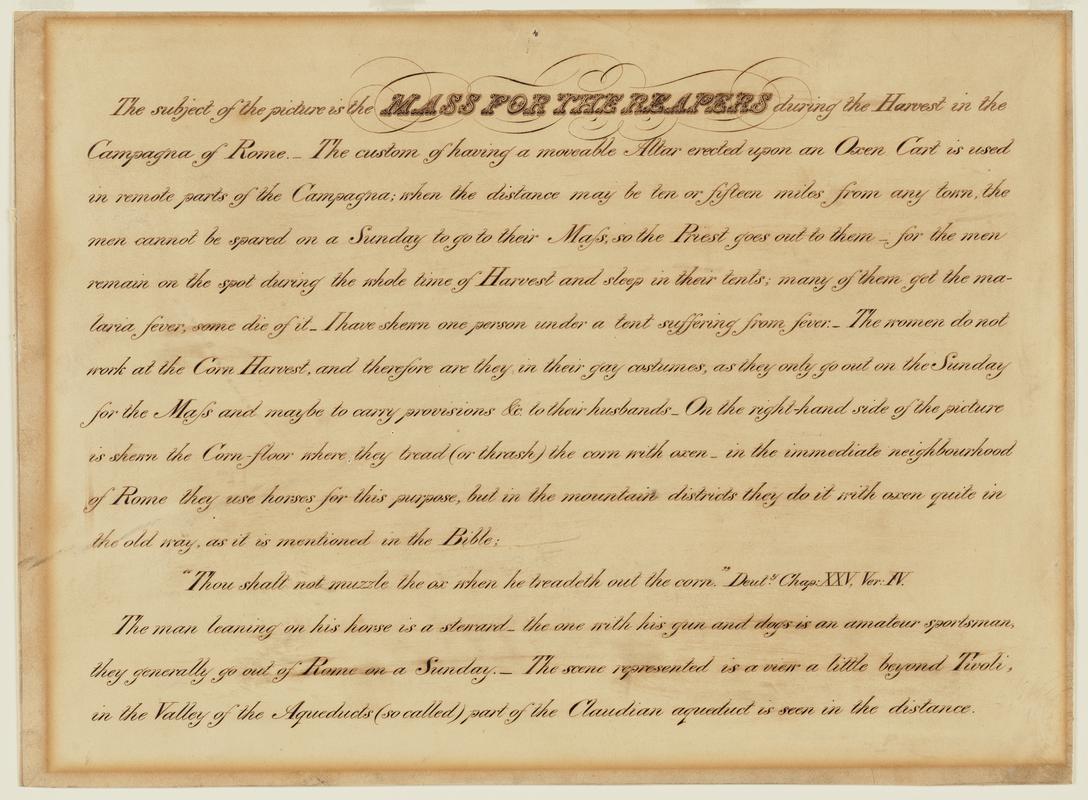 The subject of the picture is the MASS FOR THE REAPERS during the Harvest in the
Campagna of Rome._ The custom of having a moveable Altar erected upon an Oxen Cart is used
in remote parts of the Campagna; when the distance may be ten or fifteen miles from any town, the
men cannot be spared on a Sunday to go to their Maſs, so the Priest goes out to them _ for the men
remain on the spot during the whole time of Harvest and sleep in their tents; many of them get the ma-
laria fever, some die of it_ I have shewn one person under a tent suffering from fever._ The women do not
work at the Corn Harvest, and therefore are they in their gay costumes, as they only go out on the Sunday
for the Maſs and maybe to carry provisions &c. to their husbands_ On the right-hand side of the picture
is shewn the Corn-floor where they tread (or thrash) the corn with oxen_ in the immediate neighbourhood
of Rome they use horses for this purpose, but in the mountain districts they do it with oxen quite in
the old way, as it is mentioned in the Bible;
“Thou shalt not muzzle the ox when he treadeth out the corn.” Deut.y Chap: XXV, Ver: IV.
The man leaning on his horse is a steward_ the one with his gun and dogs is an amateur sportsman,
they generally go out of Rome on a Sunday._ The scene represented is a view a little beyond Tivoli,
in the Valley of the Aqueducts (so called) part of the Claudian aqueduct is seen in the distance.